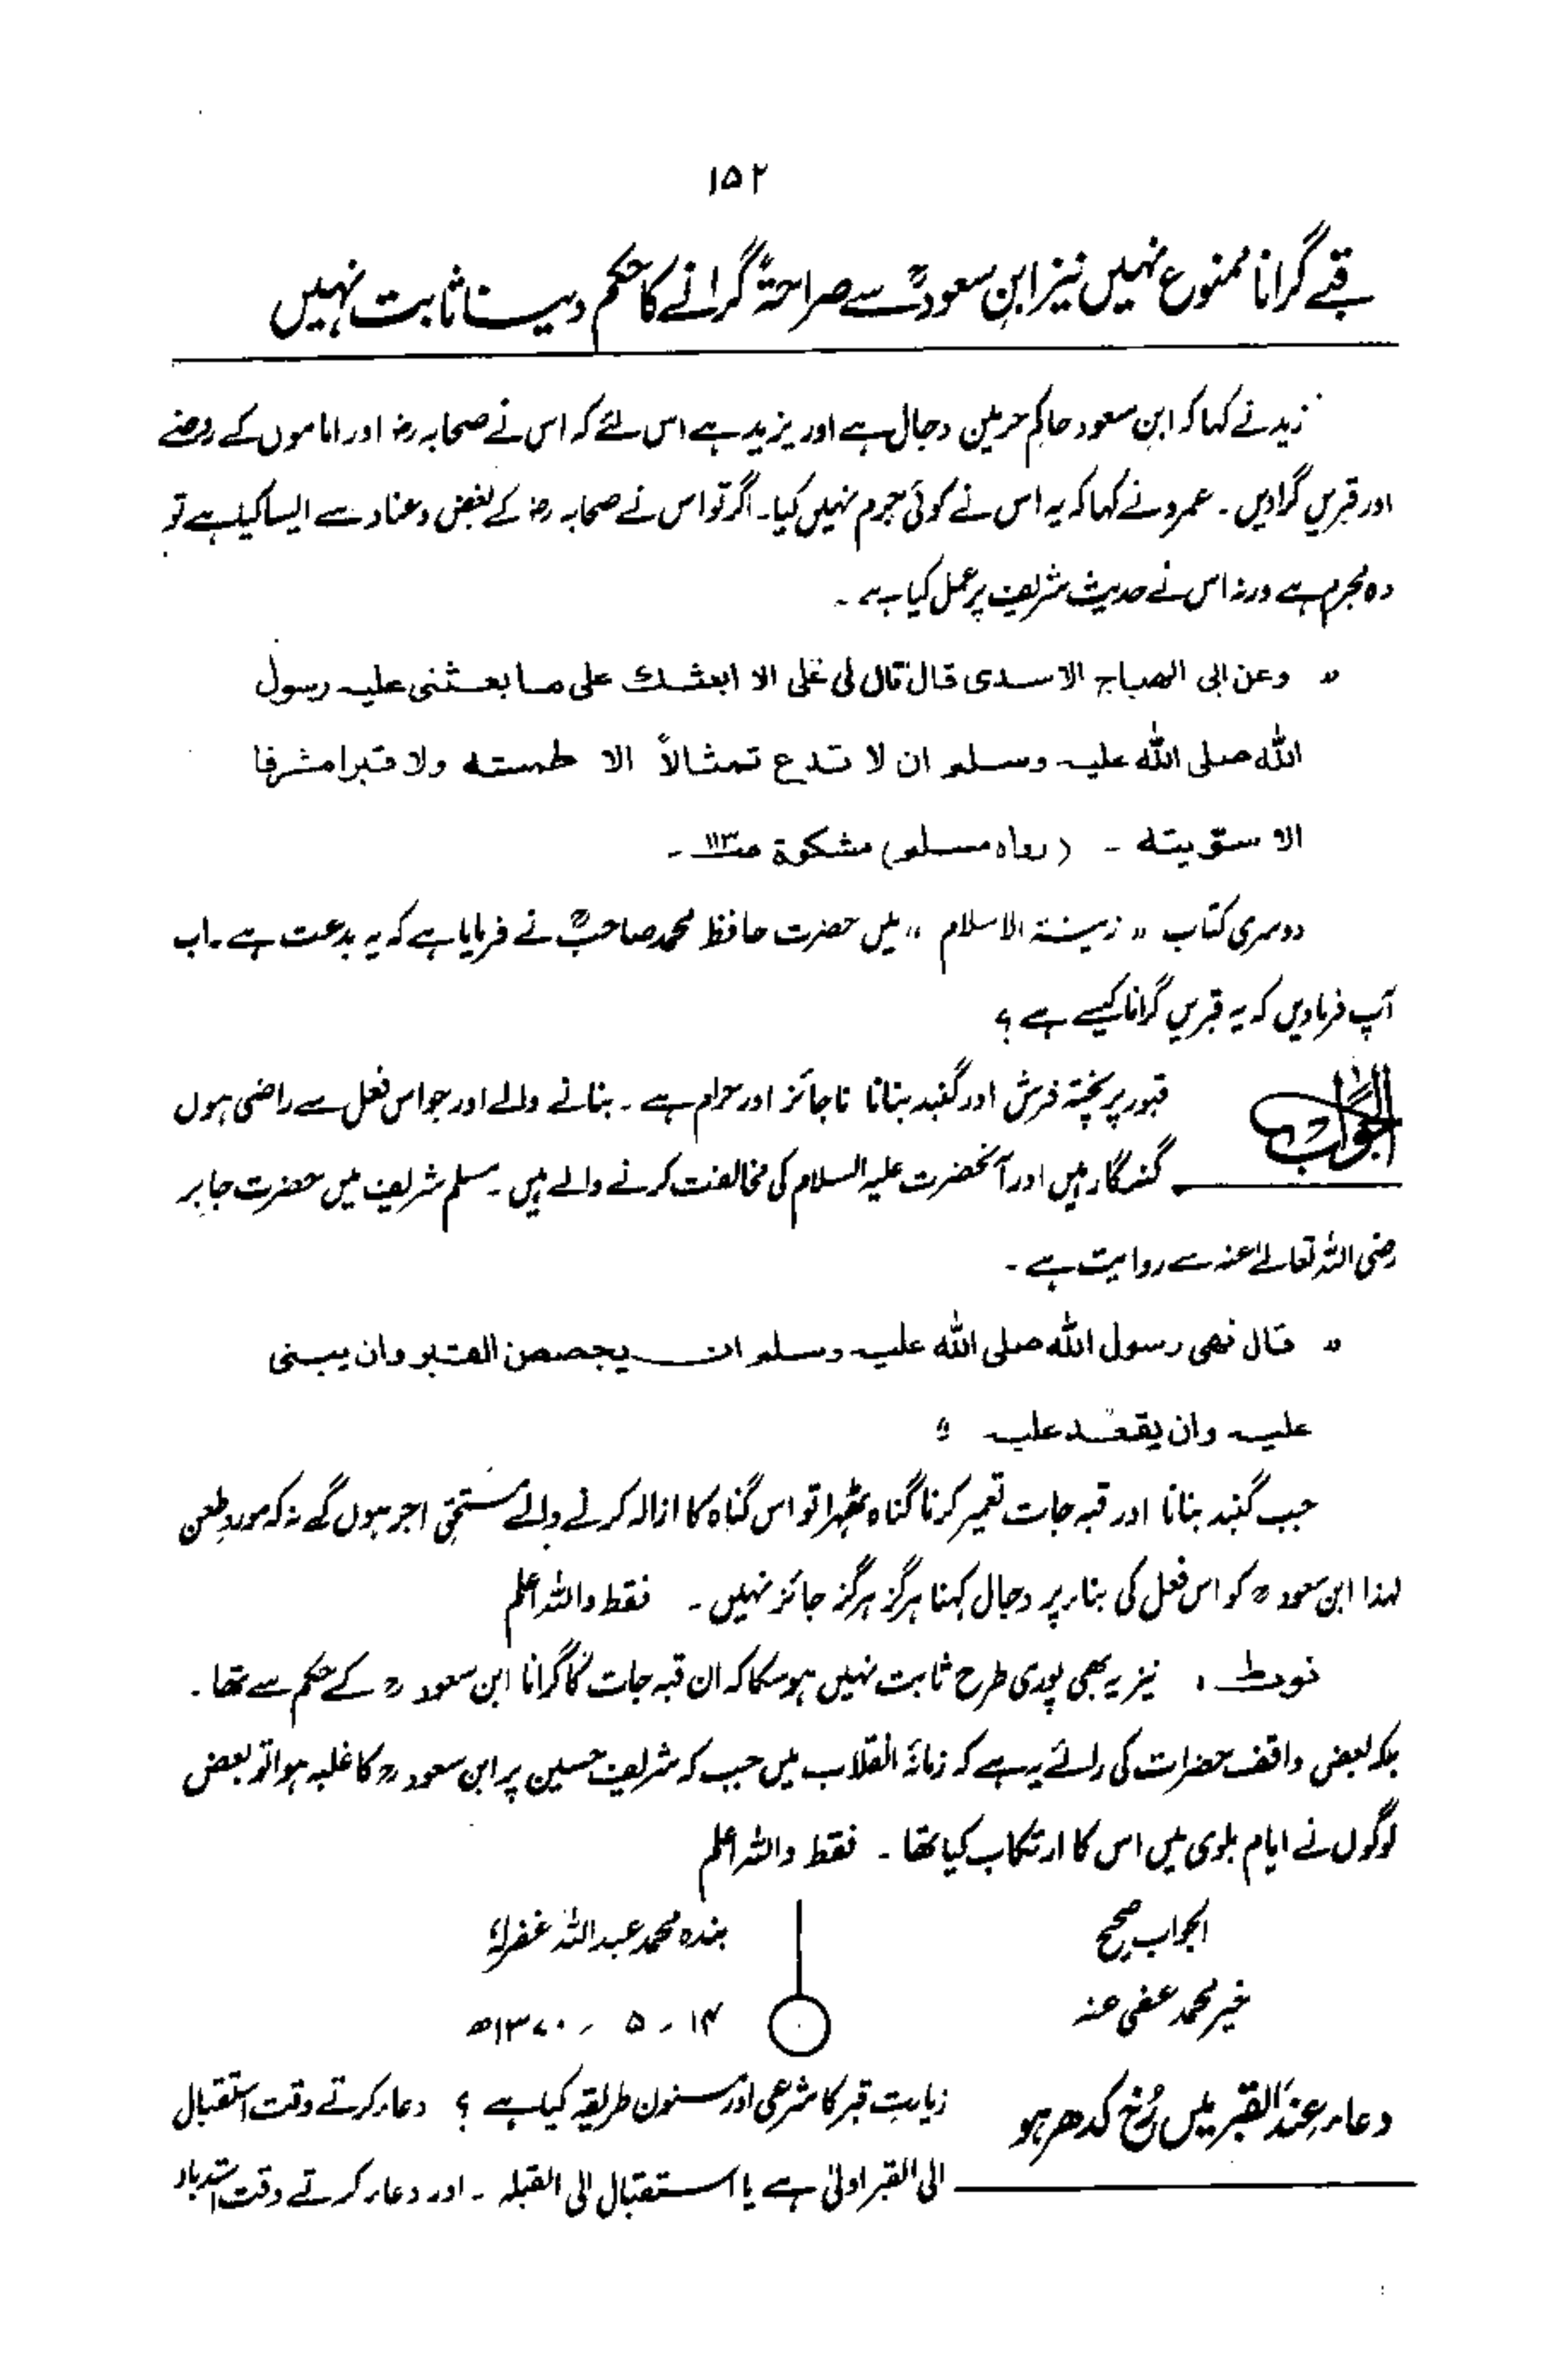 ۱۵۲
قبے گرانا ممنوع نہیں نیز ابن سعودؒ سے صراحۃً گرانے کا حکم دینا ثابت نہیں
زید نے کہا کہ ابن سعود حاکم حرمین دجال ہے اور یزید ہے اس لئے کہ اس نے صحابہ رضؓ اور اماموں کے روضے
اور قبریں گرادیں ۔ عمرو نے کہا کہ یہ اس نے کوئی جرم نہیں کیا۔ اگر تو اس نے صحابہ رضؓ کے بغض وعناد سے ایسا کیا ہے تو
وہ مجرم ہے ورنہ اس نے حدیث شریف پر عمل کیا ہے ۔
" وعن ابی الھیاج الاسدی قال قال لی علی الا ابعثک علی ما بعثنی علیہ رسول
اللہ صلی اللہ علیہ وسلم ان لا تدع تمثالاً الا طمستہ ولا قبرا مشرفا
الا سویتہ ۔ (رواہ مسلم) مشکوۃ
دوسری کتاب " زینۃ الاسلام " میں حضرت حافظ محمد صاحبؒ نے فرمایا ہے کہ یہ بدعت ہے ۔ اب
آپ فرمادیں کہ یہ قبریں گرانا کیسے ہے ؟
الجواب
قبور پر پختہ فرش اور گنبد بنانا ناجائز اور حرام ہے ۔ بنانے والے اور جو اس فعل سے راضی ہوں
گنہگار ہیں اور آنحضرت علیہ السلام کی مخالفت کرنے والے ہیں ۔ مسلم شریف میں حضرت جابر
رضی اللہ تعالےٰ عنہ سے روایت ہے ۔
" قال نھی رسول اللہ صلی اللہ علیہ وسلم ان یجصص القبر وان یبنی
علیہ وان یقعد علیہ "
جب گنبد بنانا اور قبہ جات تعمیر کرنا گناہ ٹھہرا تو اس گناہ کا ازالہ کرنے والے مستحق اجر ہوں گے نہ کہ مورد طعن
لہذا ابن سعودؒ کو اس فعل کی بناء پر دجال کہنا ہرگز ہرگز جائز نہیں ۔ فقط واللہ اعلم
نوٹ : نیز یہ بھی پوری طرح ثابت نہیں ہوسکا کہ ان قبہ جات کا گرانا ابن سعودؒ کے حکم سے تھا ۔
بلکہ بعض واقف حضرات کی رائے یہ ہے کہ زمانۂ انقلاب میں جب کہ شریف حسین پر ابن سعودؒ کا غلبہ ہوا تو بعض
لوگوں نے ایام بلوی میں اس کا ارتکاب کیا تھا ۔ فقط واللہ اعلم
الجواب صحیح
بندہ محمد عبد اللہ غفرلہٗ
خیر محمد عفی عنہ
۱۴ ۔ ۵ ۔ ۱۳۷۰ھ
دعاء عِندَ القبر میں رُخ کدھر ہو
زیارت قبر کا شرعی اور مسنون طریقہ کیا ہے ؟ دعاء کرتے وقت استقبال
الی القبر اولیٰ ہے یا استقبال الی القبلہ ۔ اور دعاء کرتے وقت استدبار